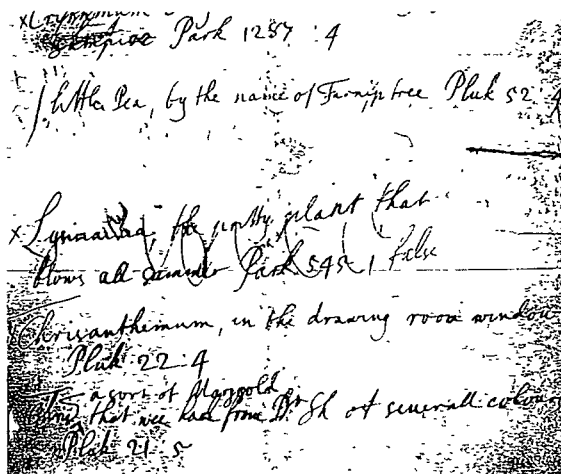 Park 1287 : 4
little Pea, by the name of Turnip tree Pluk 52 4
x the pretty plant that
blows all summer Park 545 1 false
Chrisanthemum, in the drawing room window
Pluk 22 : 4
a sort of Marygold
that wee had from Dr Sh of severall colours
Pluk 21 5